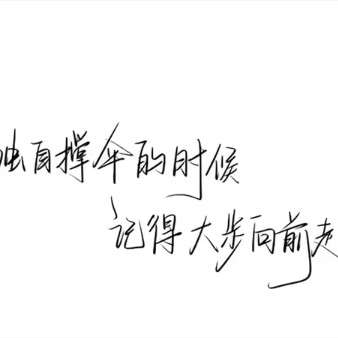 独自撑伞的时候
记得大步向前走